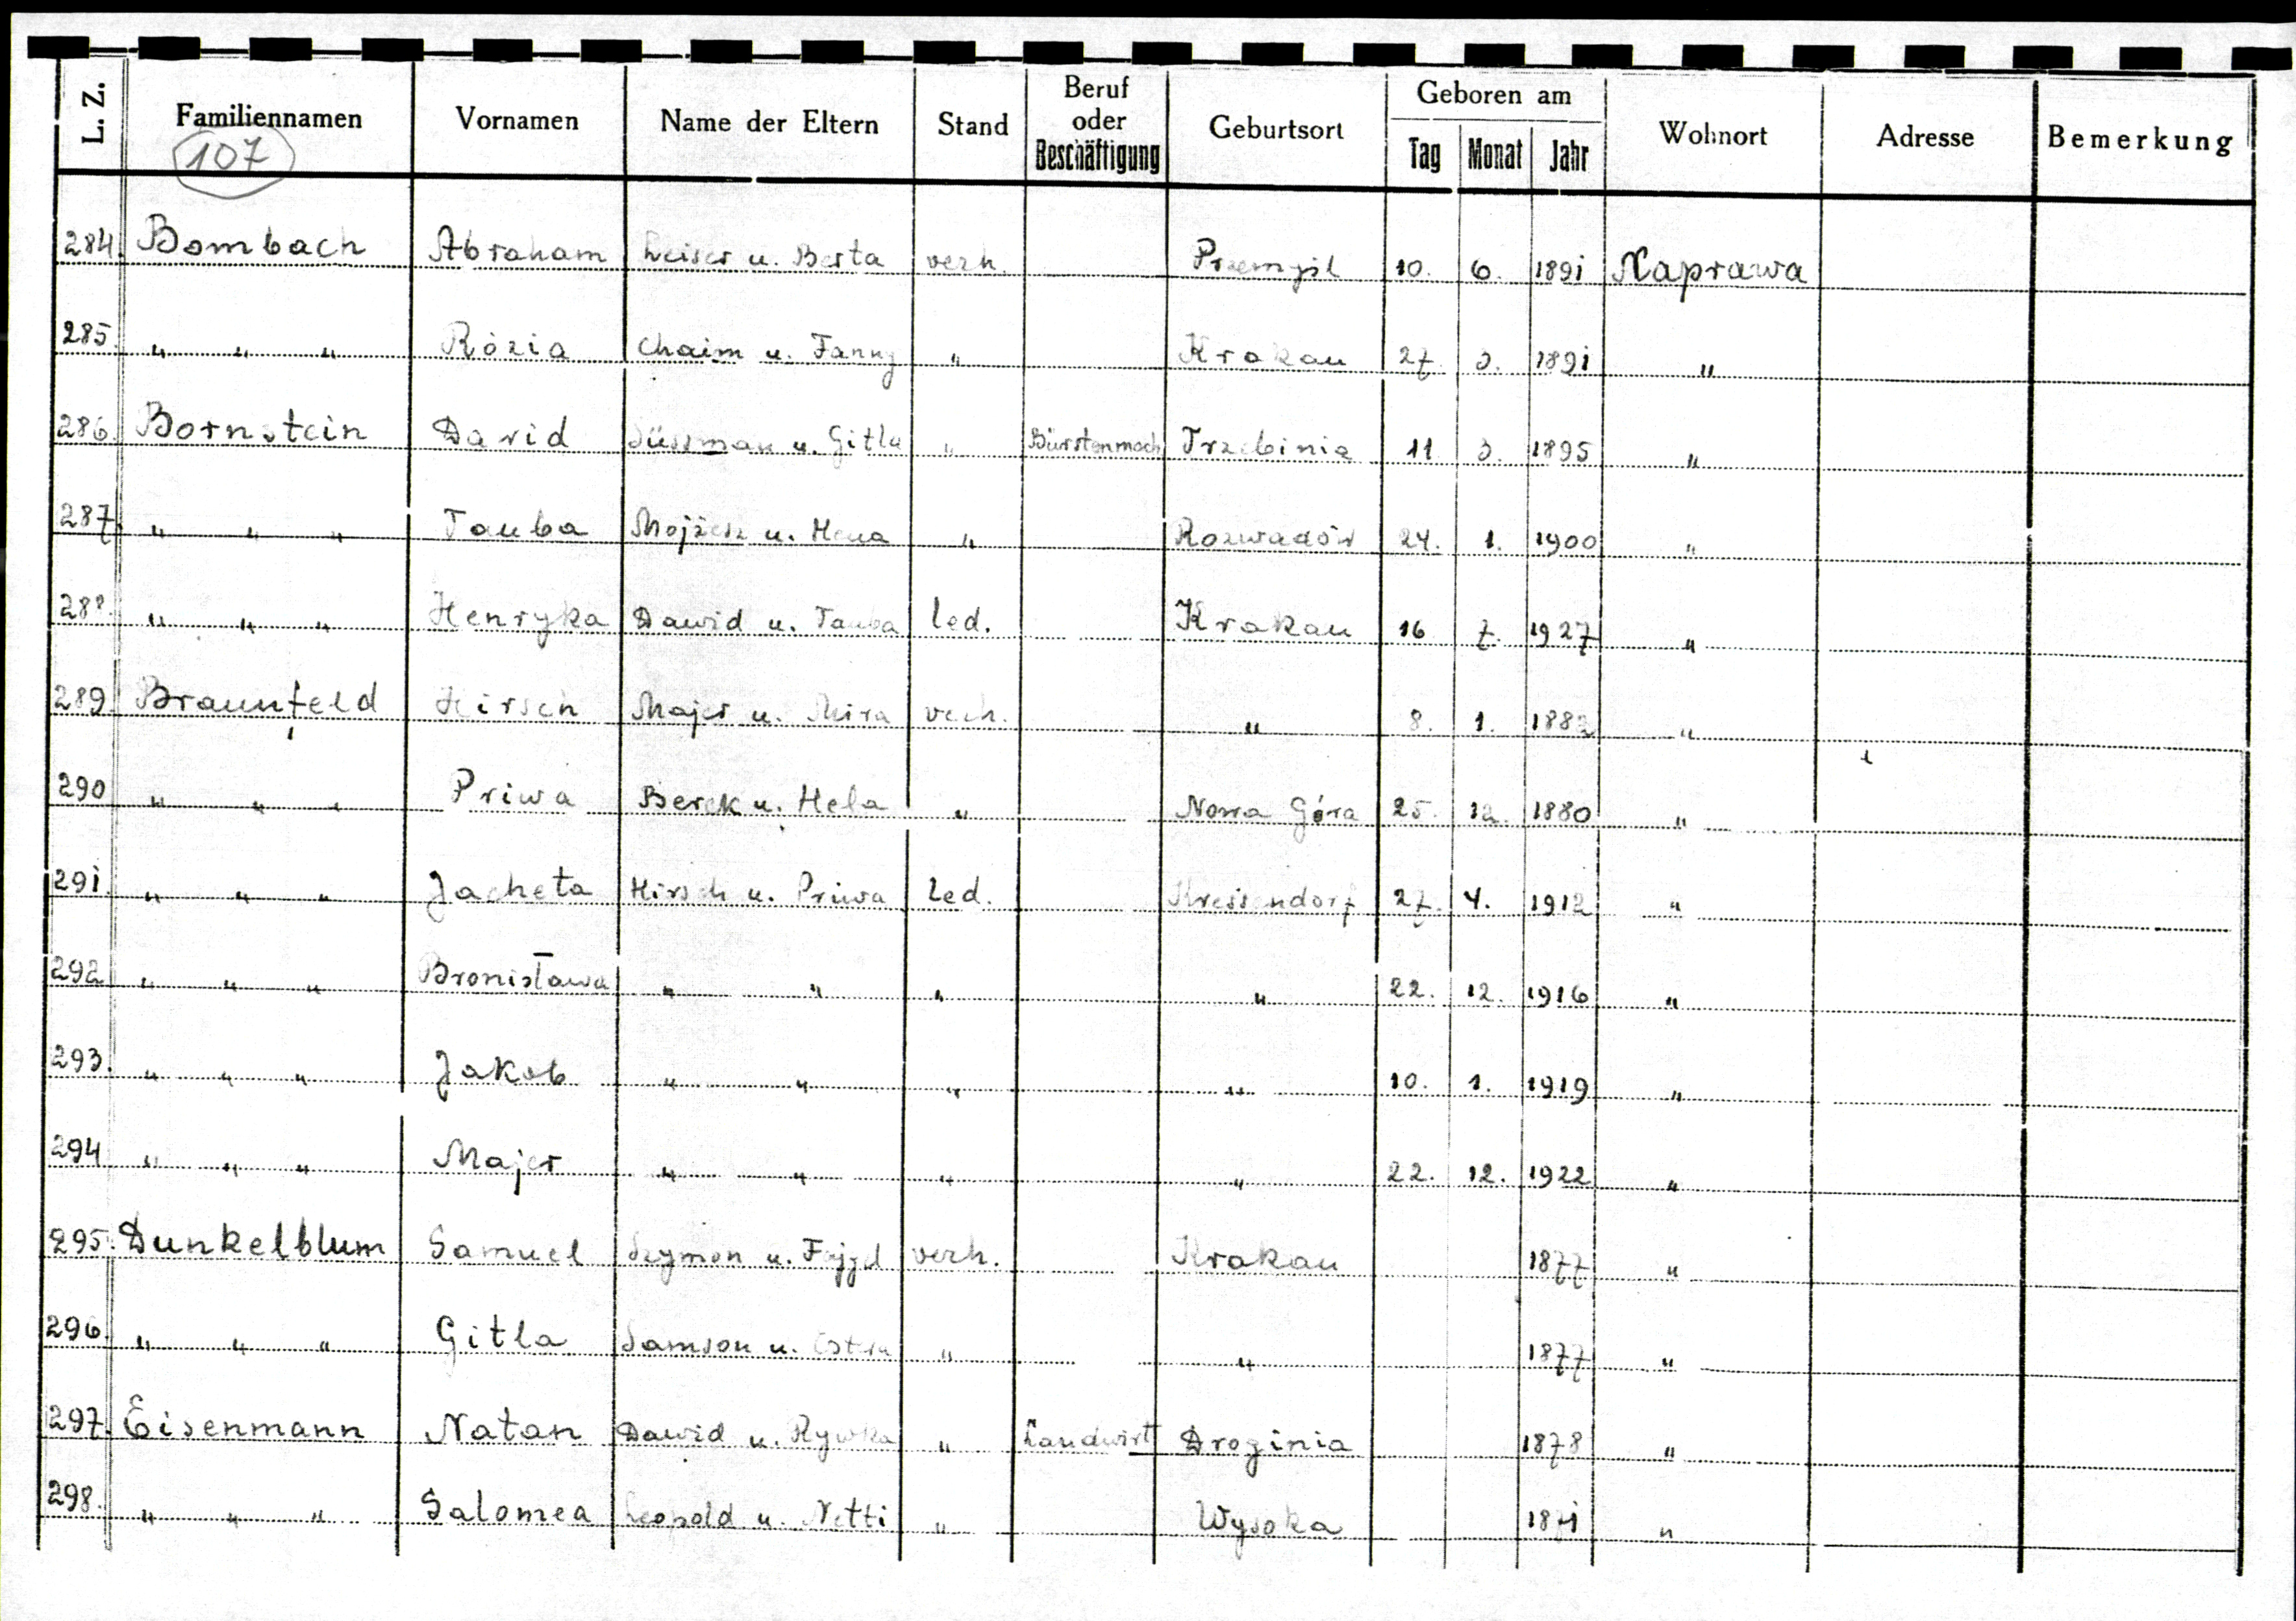 L. Z. Familiennamen Vornamen Name der Eltern Stand Beruf oder Beschäftigung Geburtsort Geboren am Tag Monat Jahr Wohnort Adresse Bemerkung
107
284. Bombach Abraham Leiser u. Berta verh. Przemysl 10. 6. 1891 Naprawa
285. " " " Rózia Chaim u. Fanny " Krakau 27. 3. 1891 "
286. Bornstein David Süssman u. Gitla " Bürstenmach Trzebinia 11 3. 1895 "
287. " " " Tauba Mojżesz u. Hena " Rozwadów 24. 1. 1900 "
288. " " " Henryka Dawid u. Tauba led. Krakau 16 7. 1927 "
289. Braunfeld Hirsch Majer u. Mira verh. " 8. 1. 1882 "
290 " " " Priwa Berek u. Hela " Nowa Góra 25. 12. 1880 "
291. " " " Jacheta Hirsch u. Priwa led. Kressendorf 27. 4. 1912 "
292 " " " Bronisława " " " " 22. 12. 1916 "
293. " " " Jakob " " " " 10. 1. 1919 "
294 " " " Majer " " " " 22. 12. 1922 "
295. Dunkelblum Samuel Szymon u. verh. Krakau 1877 "
296. " " " Gitla Samson u. " " 1877 "
297. Eisenmann Natan Dawid u. Rywka " Landwirt Droginia 1878 "
298. " " " Salomea Leopold u. Netti " Wysoka "